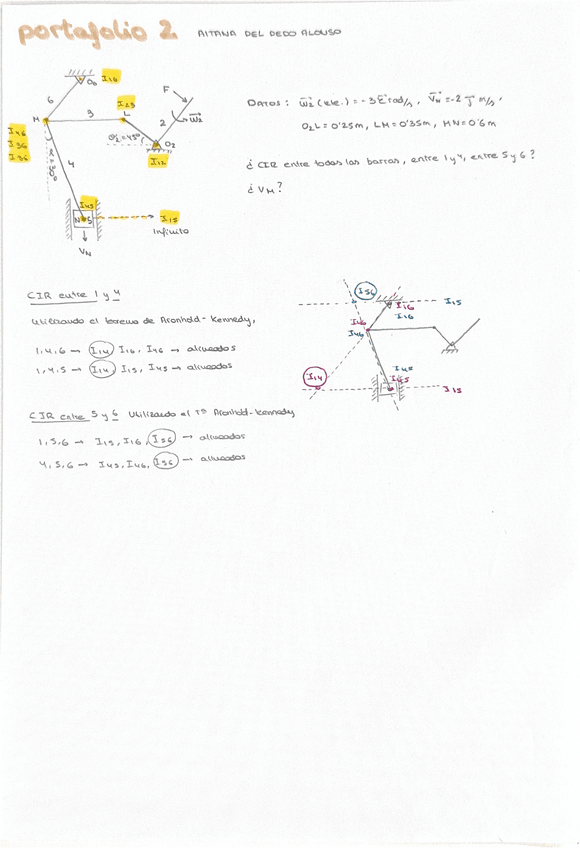 portafolio 2 AITANA DEL DEDO ALONSO
O6 I16
6
F
I23
3 L
M
2 W2
I46
I36
I34
θ2=45° O2
I12
4
I45
N 5
I15
Infinito
VN
DATOS: W2 (cte.) = -3 k rad/s, VN = -2 J m/s,
O2L = 0'25m, LM = 0'35m, MN = 0'6m
¿CIR entre todas las barras, entre 1 y 4, entre 5 y 6?
¿VM?
CIR entre 1 y 4
Utilizando el teorema de Aronhold-Kennedy,
1,4,6 → I14, I16, I46 → alineados
1,4,5 → I14, I15, I45 → alineados
I56
I16 I15
I16
I46
I46
I14
I45
I45
I15
CIR entre 5 y 6 Utilizando el Tª Aronhold-Kennedy
1,5,6 → I15, I16, I56 → alineados
4,5,6 → I45, I46, I56 → alineados